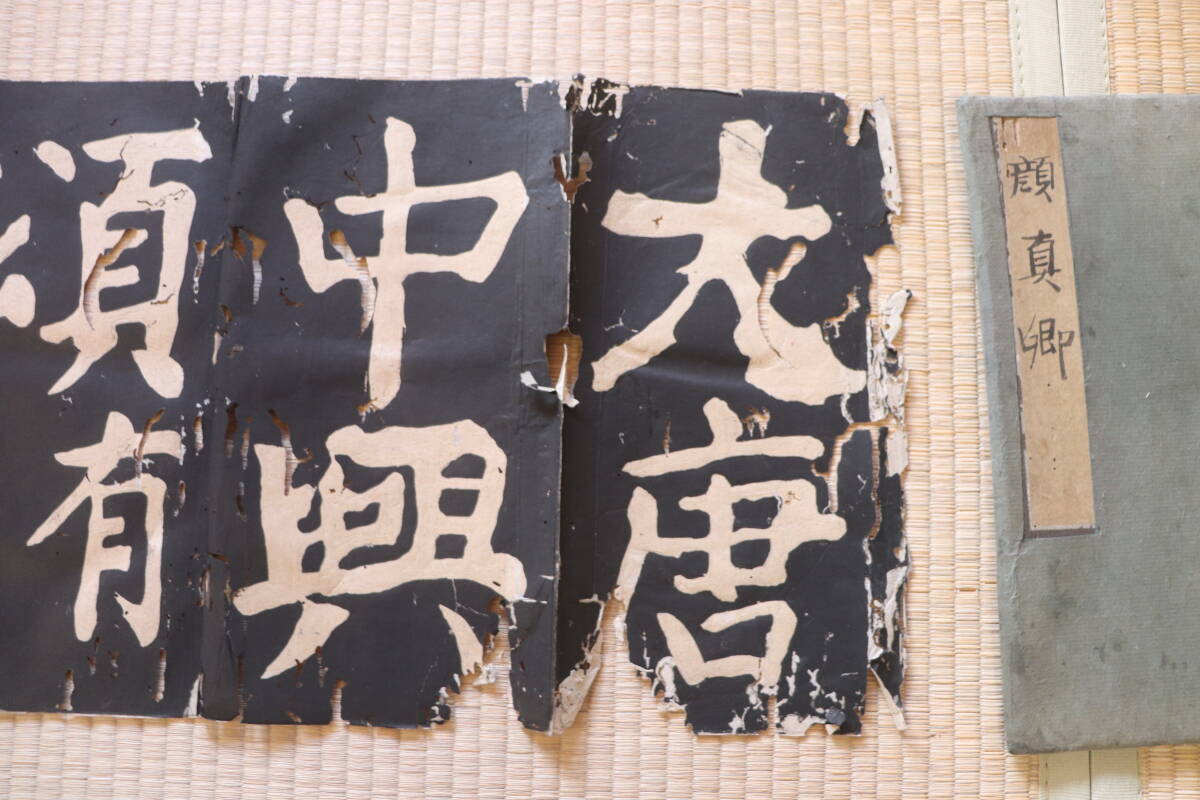 顔真卿
大唐
中興
頌有